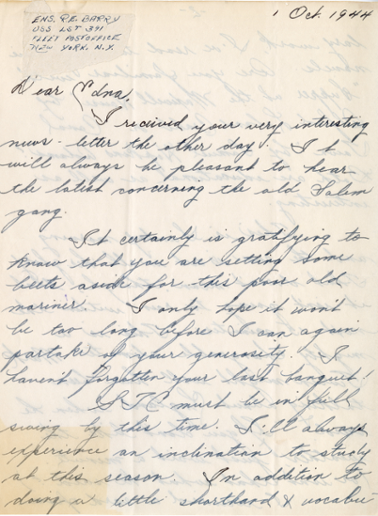 ENS. P.E. BARRY
USS LST 391
FLEET POST OFFICE
NEW YORK, N.Y.
1 Oct. 1944
Dear Edna,
I received your very interesting
news-letter the other day. It
will always be pleasant to hear
the latest concerning the old Salem
gang.
It certainly is gratifying to
know that you are setting some
beets aside for this poor old
mariner. I only hope it won't
be too long before I can again
partake of your generosity. I
haven't forgotten your last banquet!
STC must be in full
swing by this time. I'll always
experience an inclination to study
at this season. In addition to
doing a little shorthand & vocabu-